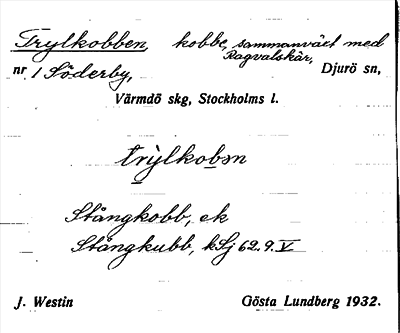 Trylkobben, kobbe, sammanväxt med
Ragvalskär,
nr 1 Söderby, Djurö sn,
Värmdö skg, Stockholms l.
trỳlkobən
Stångkobb, ek
Stångkubb, kSj 62.9.V
J. Westin Gösta Lundberg 1932.